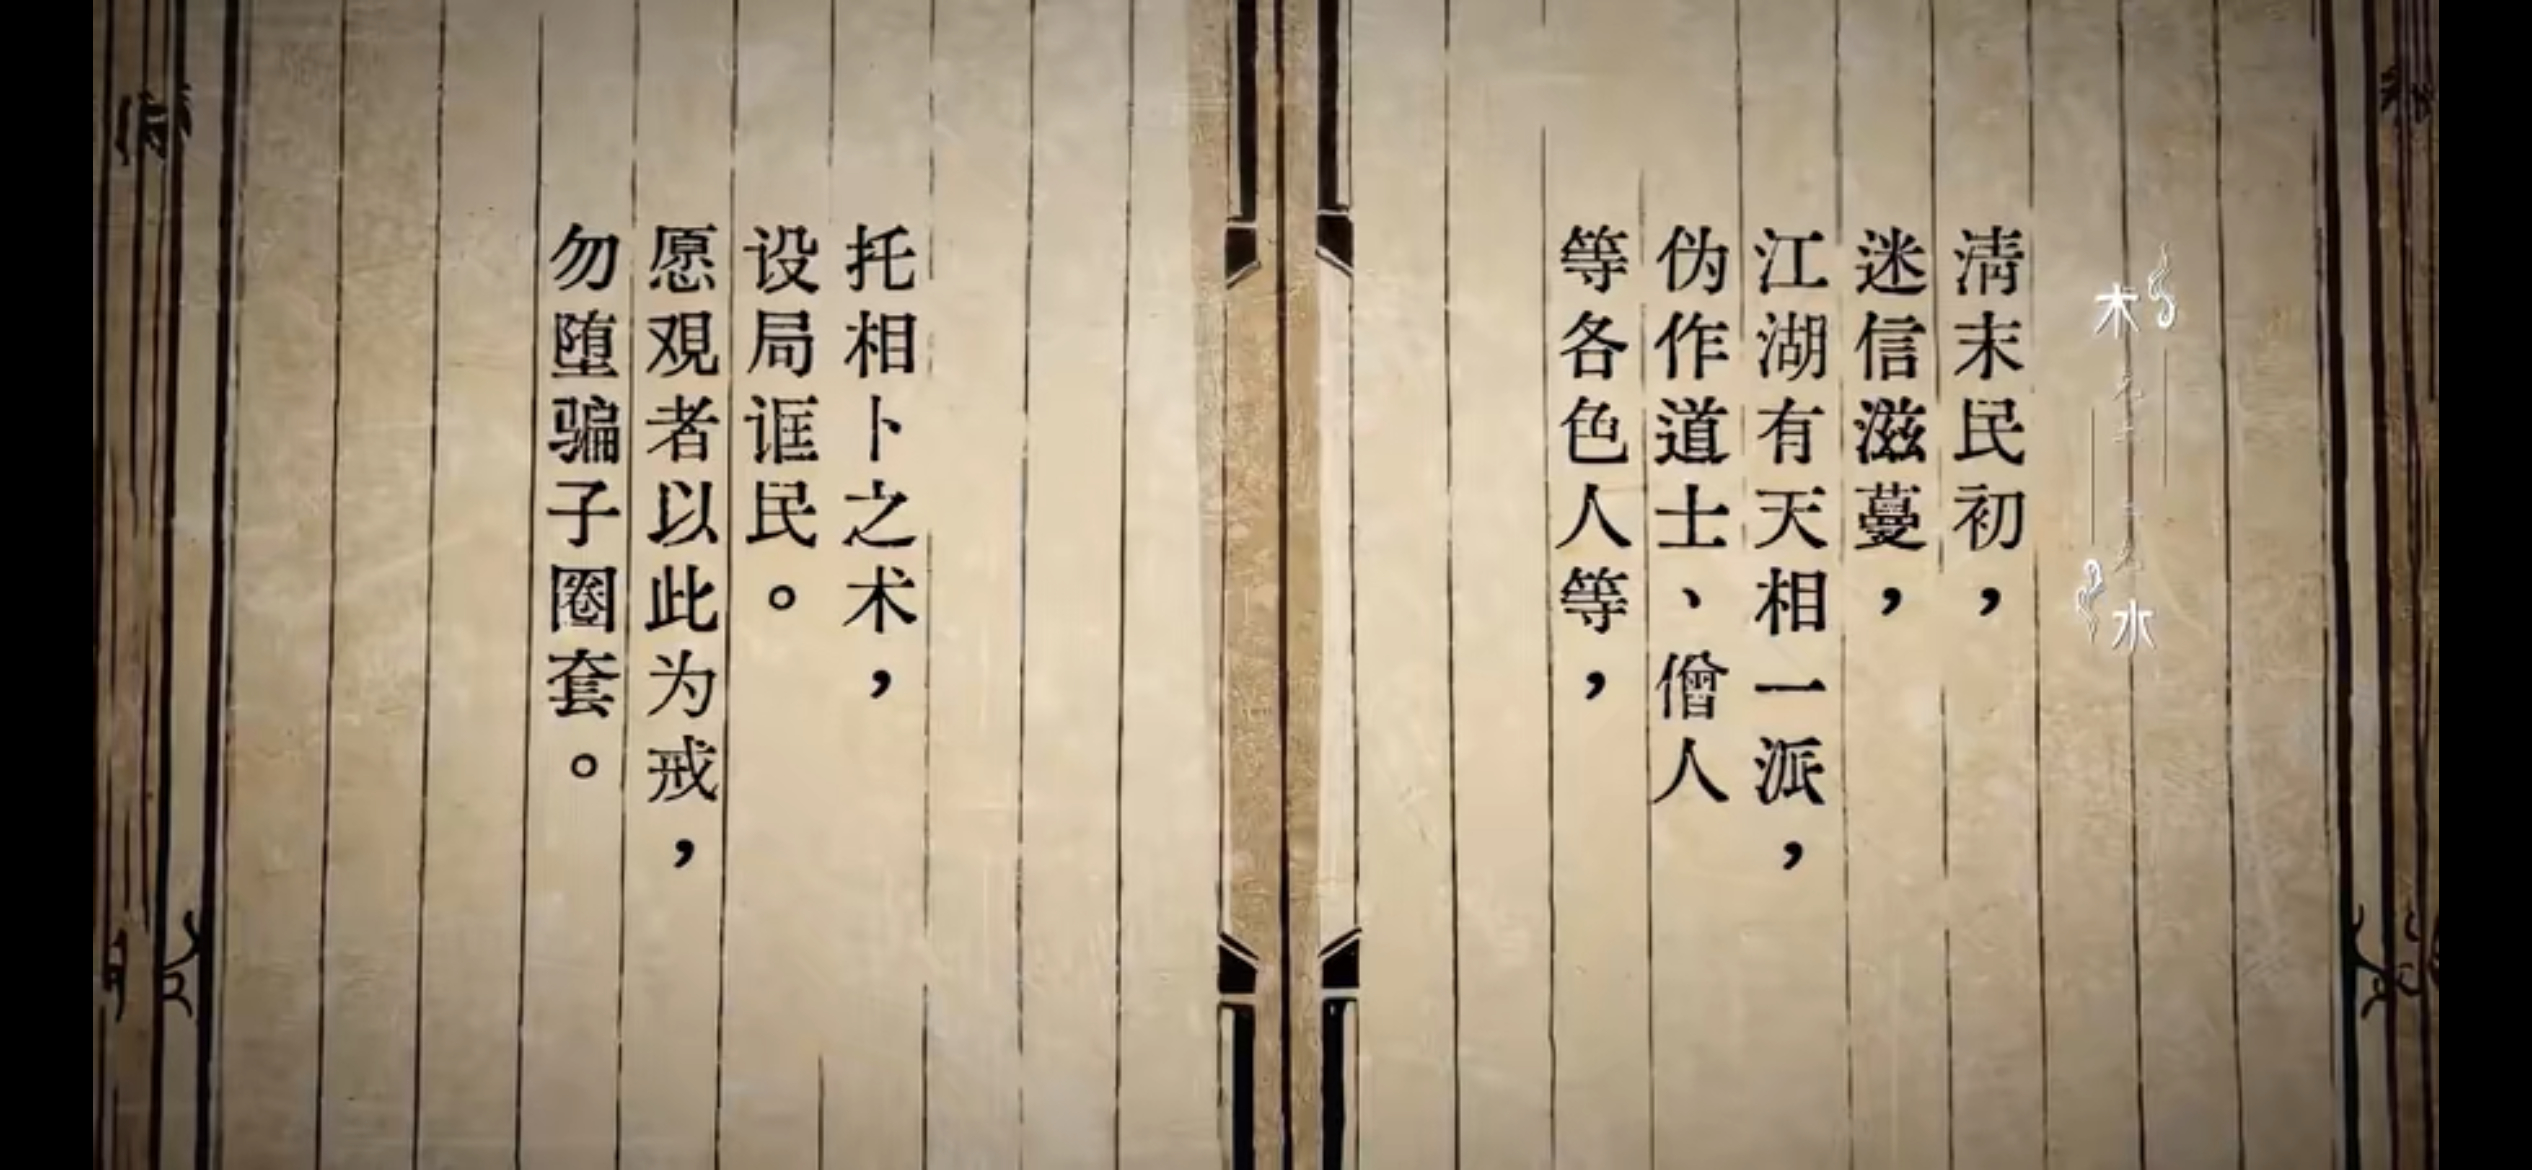 清末民初，
迷信滋蔓，
江湖有天相一派，
伪作道士、僧人
等各色人等，
托相卜之术，
设局诓民。
愿观者以此为戒，
勿堕骗子圈套。
木
水